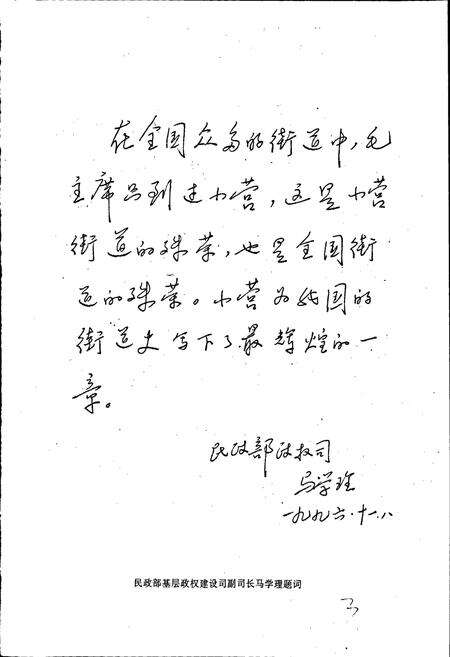 在全国众多的街道中，毛
主席只到过小营，这是小营
街道的殊荣，也是全国街
道的殊荣。小营为我国的
街道史写下了最辉煌的一
章。
民政部政权司
马学理
一九九六·十一·八
民政部基层政权建设司副司长马学理题词
3